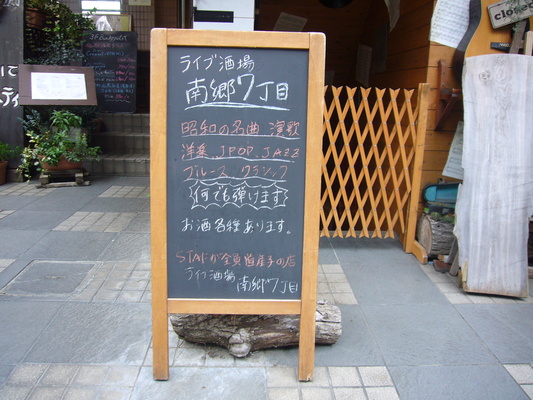 ライブ酒場
南郷7丁目
昭和の名曲 演歌
洋楽.JPOP.JAZZ
ブルース クラシック
何でも弾けます
お酒各種あります。
STAFFが全員道産子の店
ライブ酒場 南郷7丁目
closed